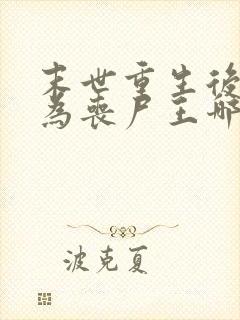 末世重生後
為喪尸王哪
波克夏